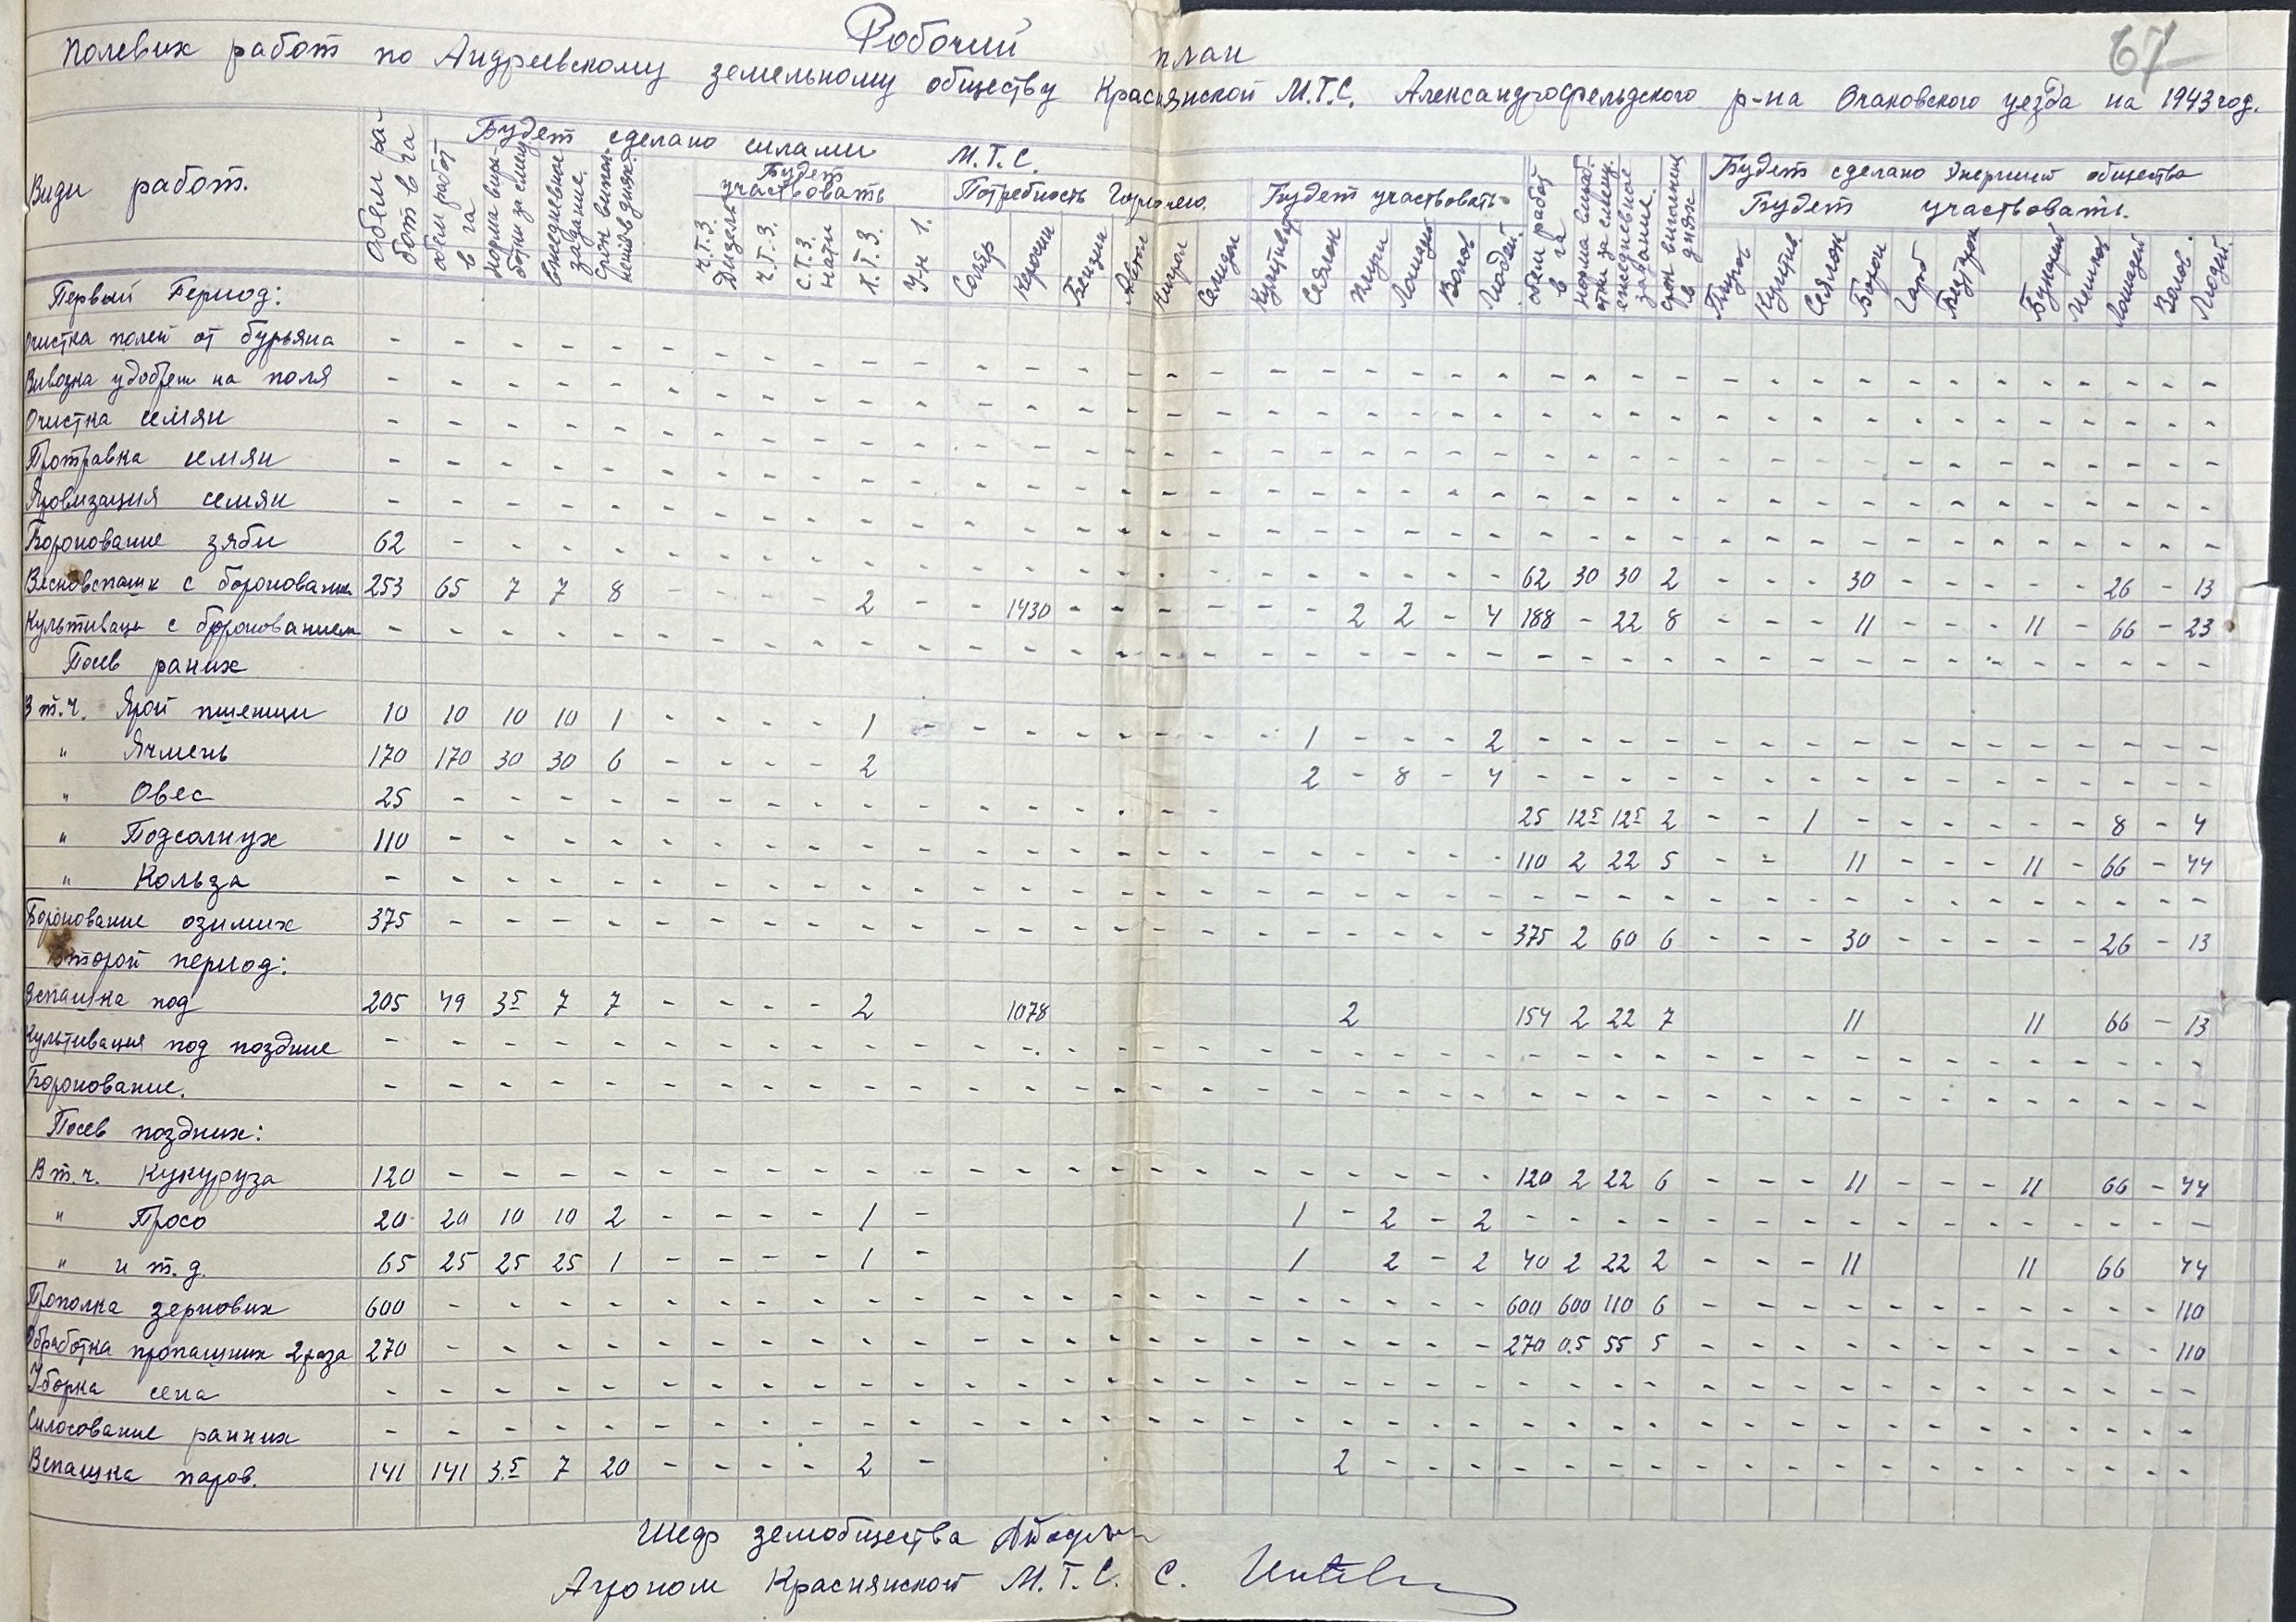 67
Робочий план
полевих работ по Андреевскому земельному обществу Краснянской М.Т.С. Александрофельдского р-на Очаковского уезда на 1943 год.
Види работ.
Обем работ в га
Будет сделано силами М.Т.С.
обем работ в га
Будет участвовать
Ч.Т.З. Дизель
Ч.Т.З.
С.Т.З. нати
Х.Т.З.
У-н 1.
Потребность Горючего.
Соляр
Керосин
Бензин
Автол
Нигрол
Солидол
Будет участвовать
Сеялок
Плуги
Лошадей
Волов
Людей.
обем работ в га
ежедневное задание.
Будет сделано Энергией общества
Будет участвовать.
Плугов
Культив
Сеялок
Борон
Гарб
Букарей
Лошадей
Волов.
Людей.
Первый Период:
Очистка полей от бурьяна - - - - - - - - - - - - - - - - - - - - - - - - - - - - - - - - - - - -
Вивозка удобрен на поля - - - - - - - - - - - - - - - - - - - - - - - - - - - - - - - - - - - -
Очистка семян - - - - - - - - - - - - - - - - - - - - - - - - - - - - - - - - - - - -
Протравка семян - - - - - - - - - - - - - - - - - - - - - - - - - - - - - - - - - - - -
Яровизация семян - - - - - - - - - - - - - - - - - - - - - - - - - - - - - - - - - - - -
Боронование зяби 62 - - - - - - - - - - - - - - - - - - - - 62 30 30 2 - - - 30 - - - - - 26 - 13
Весновспашк с боронован 253 65 7 7 8 - - - - 2 - - 1430 - - - - - - 2 2 - 4 188 - 22 8 - - - 11 - - - 11 - 66 - 23
Культиваци с боронованием - - - - - - - - - - - - - - - - - - - - - - - - - - - - - - - - - - - -
Посев раних
В т.ч. Ярой пшеници 10 10 10 10 1 - - - - 1 - - - - - - - - 1 - - - 2 - - - - - - - - - - - - - - -
" Ячмень 170 170 30 30 6 - - - - 2 2 - 8 - 4 - - - - - - - - - - - - - - -
" Овес 25 - - - - - - - - - - - - - - - - 25 12⁵ 12⁵ 2 - - 1 - - - - - - 8 - 4
" Подсолнух 110 - - - - - - - - - - - - - - - - - - - - - 110 2 22 5 - - 11 - - - 11 - 66 - 44
" Кользa - - - - - - - - - - - - - - - - - - - - - - - - - - - - - - - - - - - -
Боронование озимих 375 - - - - - - - - - - - - - - - - - - - - - 375 2 60 6 - - - 30 - - - - - 26 - 13
Второй период:
Вспашка под 205 49 3⁵ 7 7 - - - - 2 1078 2 154 2 22 7 11 11 66 - 13
Культивация под поздние - - - - - - - - - - - - - - - - - - - - - - - - - - - - - - - - - - - -
Боронование. - - - - - - - - - - - - - - - - - - - - - - - - - - - - - - - - - - - -
Посев поздних:
В т.ч. Кукуруза 120 - - - - - - - - - - - - - - - - - - - - - 120 2 22 6 - - - 11 - - - 11 66 - 44
" Просо 20 20 10 10 2 - - - - 1 - 1 - 2 - 2 - - - - - - - - - - - - - - -
" и т.д. 65 25 25 25 1 - - - - 1 - 1 2 - 2 40 2 22 2 - - - 11 11 66 44
Прополка зернових 600 - - - - - - - - - - - - - - - - - - - - - 600 600 110 6 - - - - - - - - - - - 110
Обработка пропашних 2 раза 270 - - - - - - - - - - - - - - - - - - - - - 270 0.5 55 5 - - - - - - - - - - - 110
Уборка сена - - - - - - - - - - - - - - - - - - - - - - - - - - - - - - - - - - - -
Силосование ранних - - - - - - - - - - - - - - - - - - - - - - - - - - - - - - - - - - - -
Вспашка паров. 141 141 3.⁵ 7 20 - - - - 2 - 2 - - - - - - - - - - - - - - - - - - -
Шеф земобщества
Агроном Краснянской М.Т.С. С.